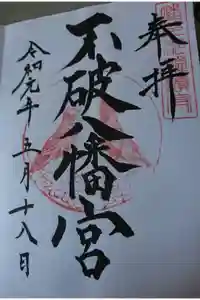 奉拝
不破八幡宮
令和元年五月十八日